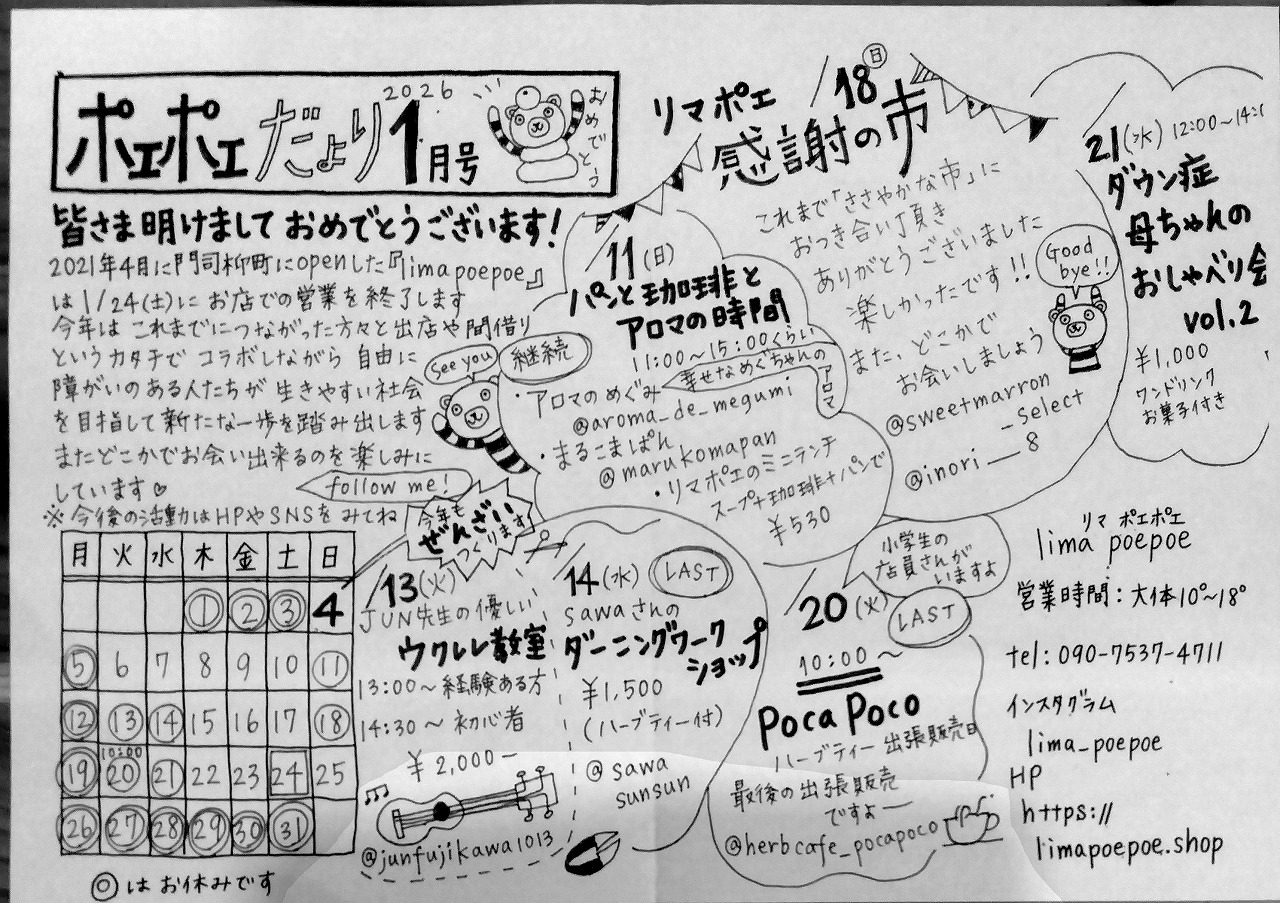 ポェポェだより 2026 1月号
おめでとう
皆さま明けましておめでとうございます!
2021年4月に門司柳町にopenした『lima poepoe』
は1/24(土)にお店での営業を終了します
今年はこれまでにつながった方々と出店や間借り
というカタチでコラボしながら自由に
障がいのある人たちが生きやすい社会
を目指して新たな一歩を踏み出します
またどこかでお会い出来るのを楽しみに
しています♡
※今後の活動はHPやSNSをみてね
follow me!
See you
月 火 水 木 金 土 日
1 2 3 4
5 6 7 8 9 10 11
12 13 14 15 16 17 18
10:00
19 20 21 22 23 24 25
26 27 28 29 30 31
◎はお休みです
11(日)
パンと珈琲と
アロマの時間
11:00〜15:00くらい
継続
幸せなめぐちゃんの
アロマ
・アロマのめぐみ
@aroma_de_megumi
・まるこまぱん
@marukomapan
・リマポエのミニランチ
スープ+珈琲+パンで
¥530
リマポエ
18日
感謝の市
これまで「ささやかな市」に
おつき合い頂き
ありがとうございました
楽しかったです!!
また、どこかで
お会いしましょう
Good
bye!!
@sweetmarron
_select
@inori___8
21(水) 12:00〜14:
ダウン症
母ちゃんの
おしゃべり会
vol.2
¥1,000
ワンドリンク
お菓子付き
今年も
ぜんざい
つくります
13(火)
JUN先生の優しい
ウクレレ教室
13:00〜経験ある方
14:30〜初心者
¥2,000-
@junfujikawa1013
14(水)
LAST
sawaさんの
ダーニングワーク
ショップ
¥1,500
(ハーブティー付)
@sawa
sunsun
小学生の
店員さんが
いますよ
20(火)
LAST
10:00〜
Poca Poco
ハーブティー出張販売日
最後の出張販売
ですよー
@herbcafe_pocapoco
リマ ポエポエ
lima poepoe
営業時間:大体10°〜18°
tel:090-7537-4711
インスタグラム
lima_poepoe
HP
https://
limapoepoe.shop